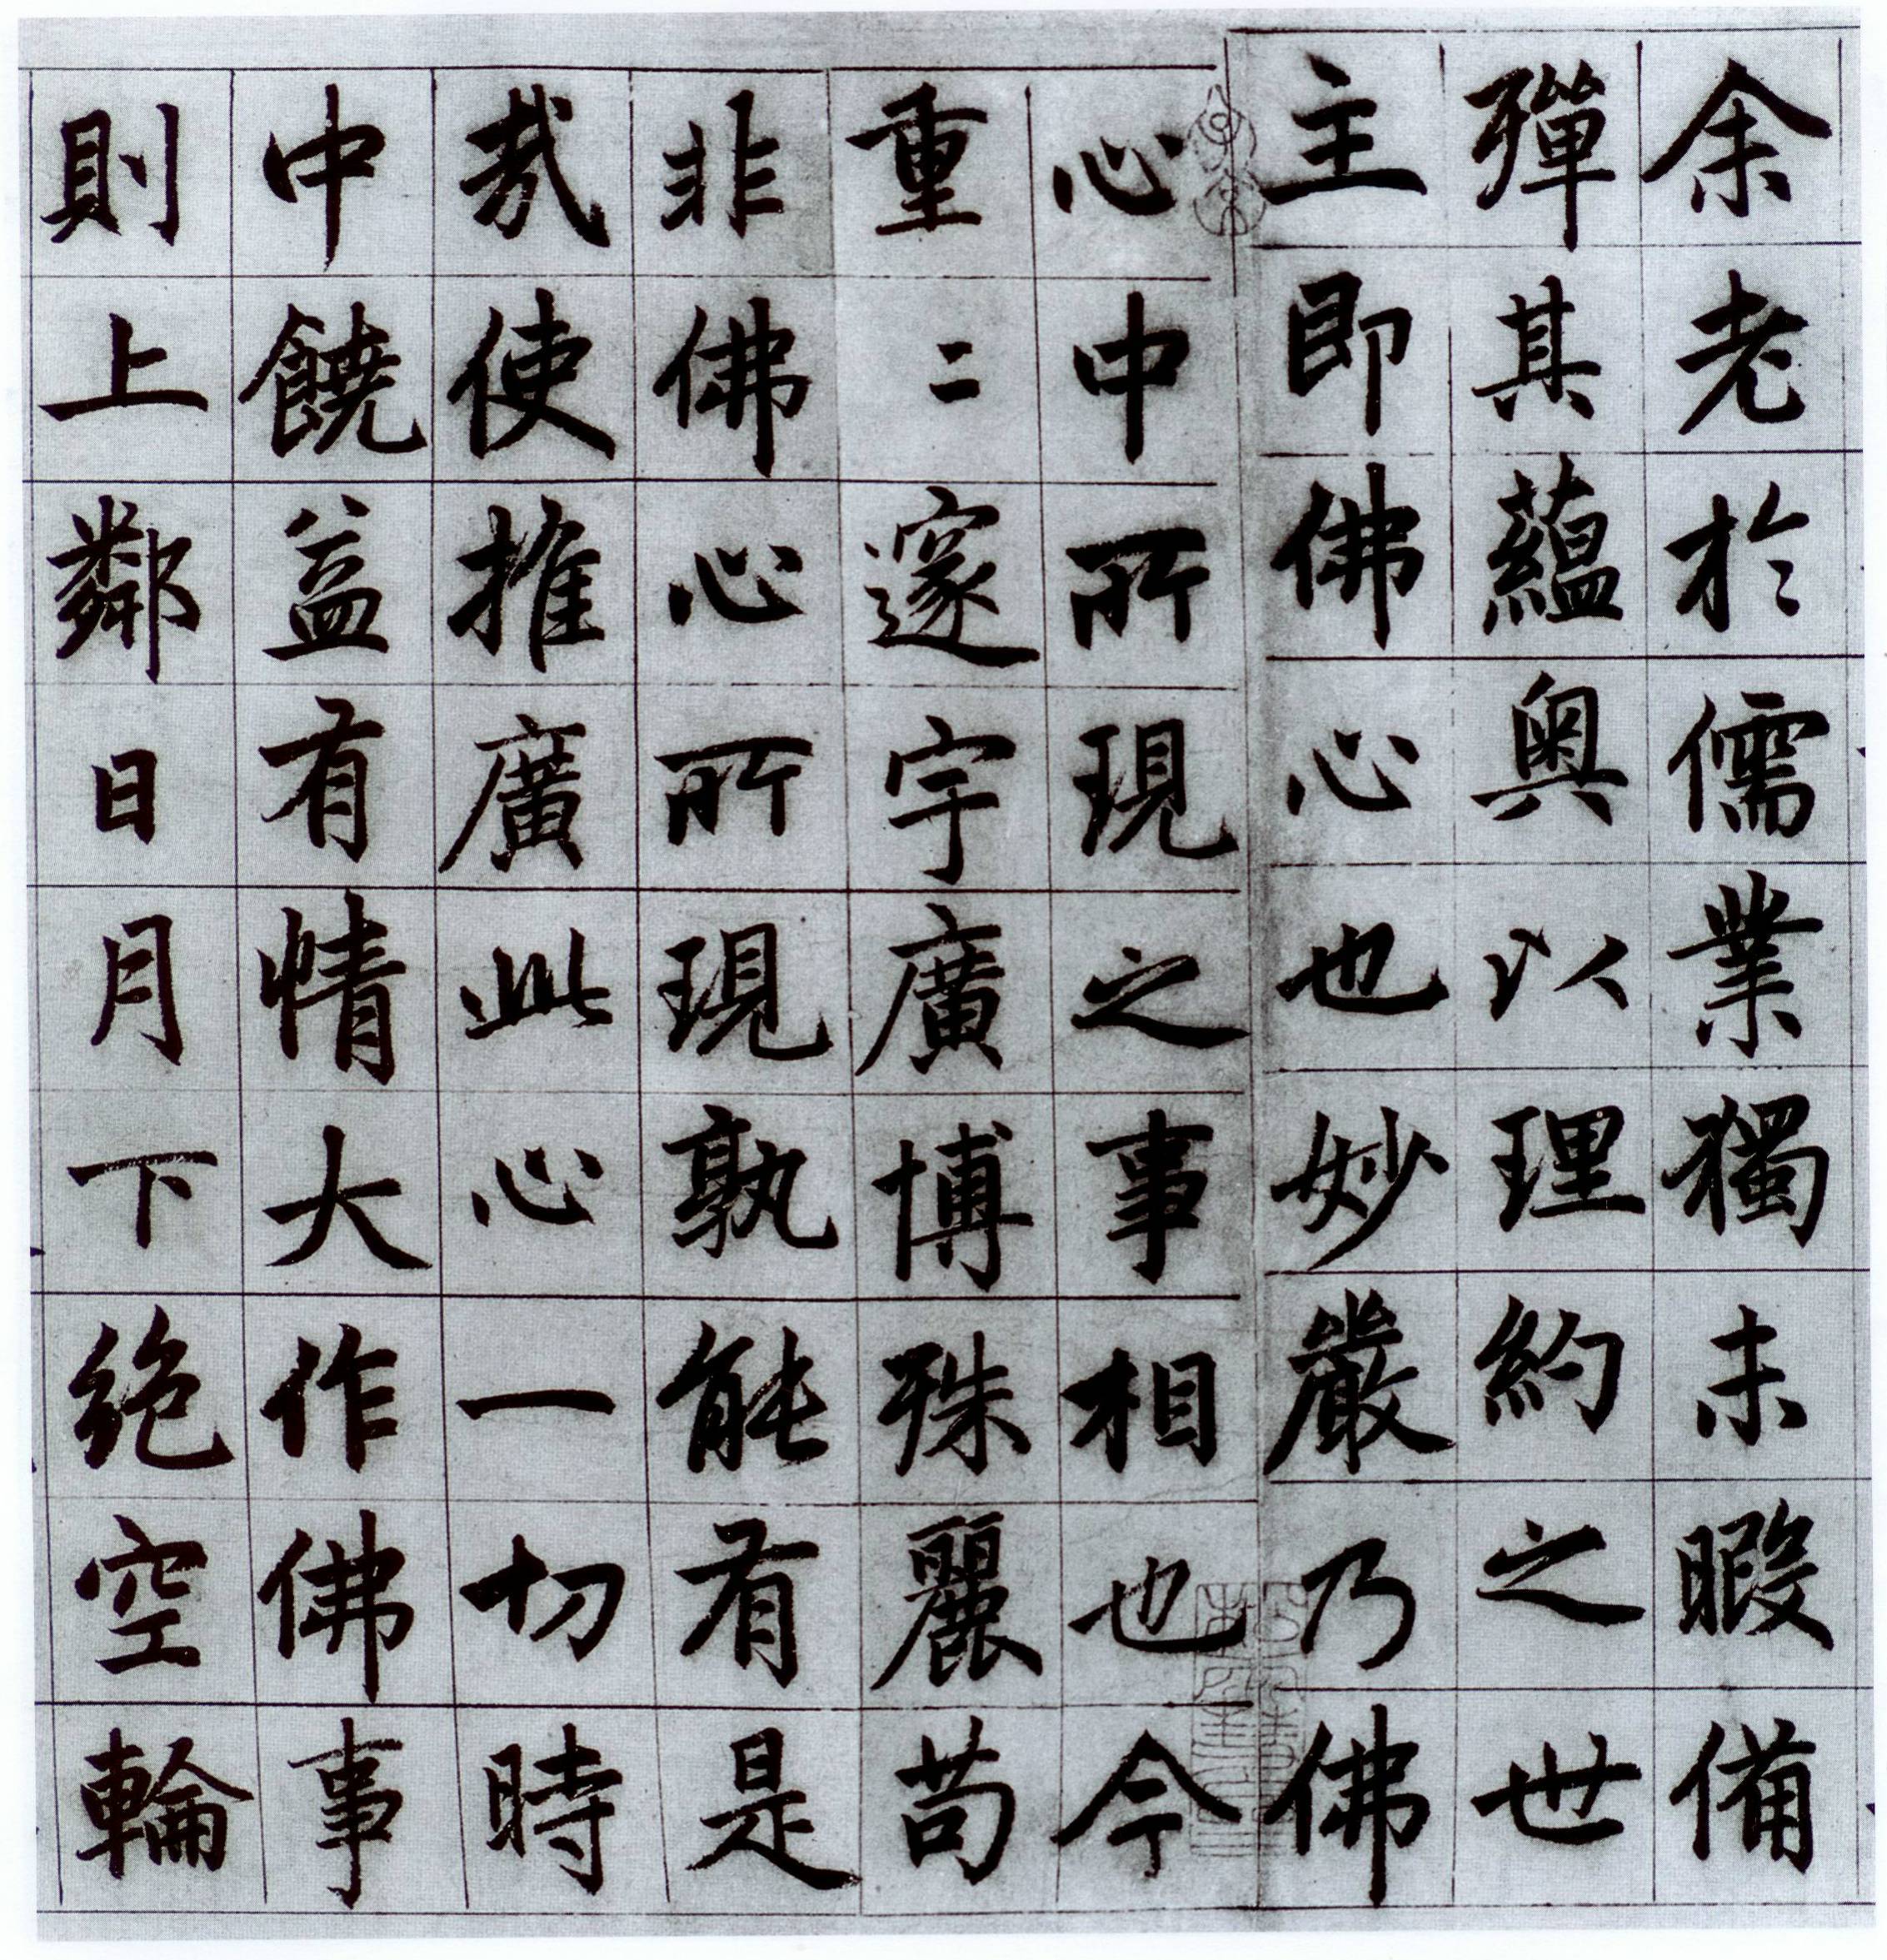 余老於儒業獨未暇備
殫其蘊奧以理約之世
主即佛心也妙嚴乃佛
心中所現之事相也今
重二邃宇廣博殊麗苟
非佛心所現孰能有是
哉使推廣此心一切時
中饒益有情大作佛事
則上鄰日月下絶空輪